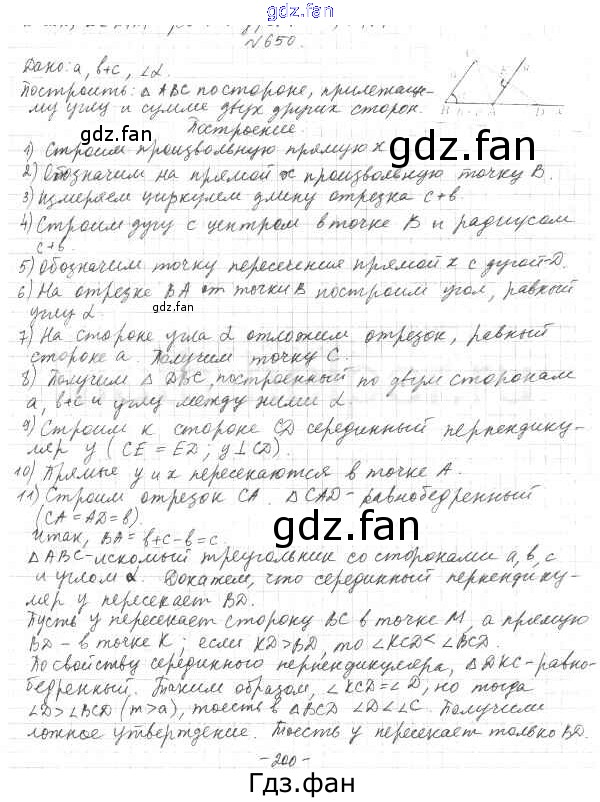 gdz.fan
№650.
Дано: a, b+c, ∠α.
Построить: △ABC по стороне, прилежаще-
му углу и сумме двух других сторон.
Построение.
1) Строим произвольную прямую x
2) Обозначим на прямой x произвольную точку B.
3) Измеряем циркулем длину отрезка c+b.
4) Строим дугу с центром в точке B и радиусом
c+b.
5) Обозначим точку пересечения прямой x с дугой-D.
6) На отрезке BA от точки B построим угол, равный
углу α.
7) На стороне угла α отложим отрезок, равный
стороне a. Получим точку C.
8) Получим △DBC, построенный по двум сторонам
a, b+c и углу между ними α.
9) Строим к стороне CD серединный перпендику-
ляр y (CE = ED; y⊥CD).
10) Прямые y и x пересекаются в точке A.
11) Строим отрезок CA. △CAD - равнобедренный
(CA = AD = b).
Итак, BA = b+c-b = c.
△ABC-искомый треугольник со сторонами a, b, c
и углом α. Докажем, что серединный перпендику-
ляр y пересекает BD.
Пусть y пересекает сторону BC в точке M, а прямую
BD - в точке K; если KD>BD, то ∠KCD<∠BCD.
По свойству серединного перпендикуляра, △DKC-равно-
бедренный. Таким образом, ∠KCD=∠D; но тогда
∠D>∠BCD (m>a), тоесть в △BCD ∠D<∠C. Получили
ложное утверждение. Тоесть y пересекает только BD.
- 200 -
gdz.fan
gdz.fan
gdz.fan
Гдз.фан